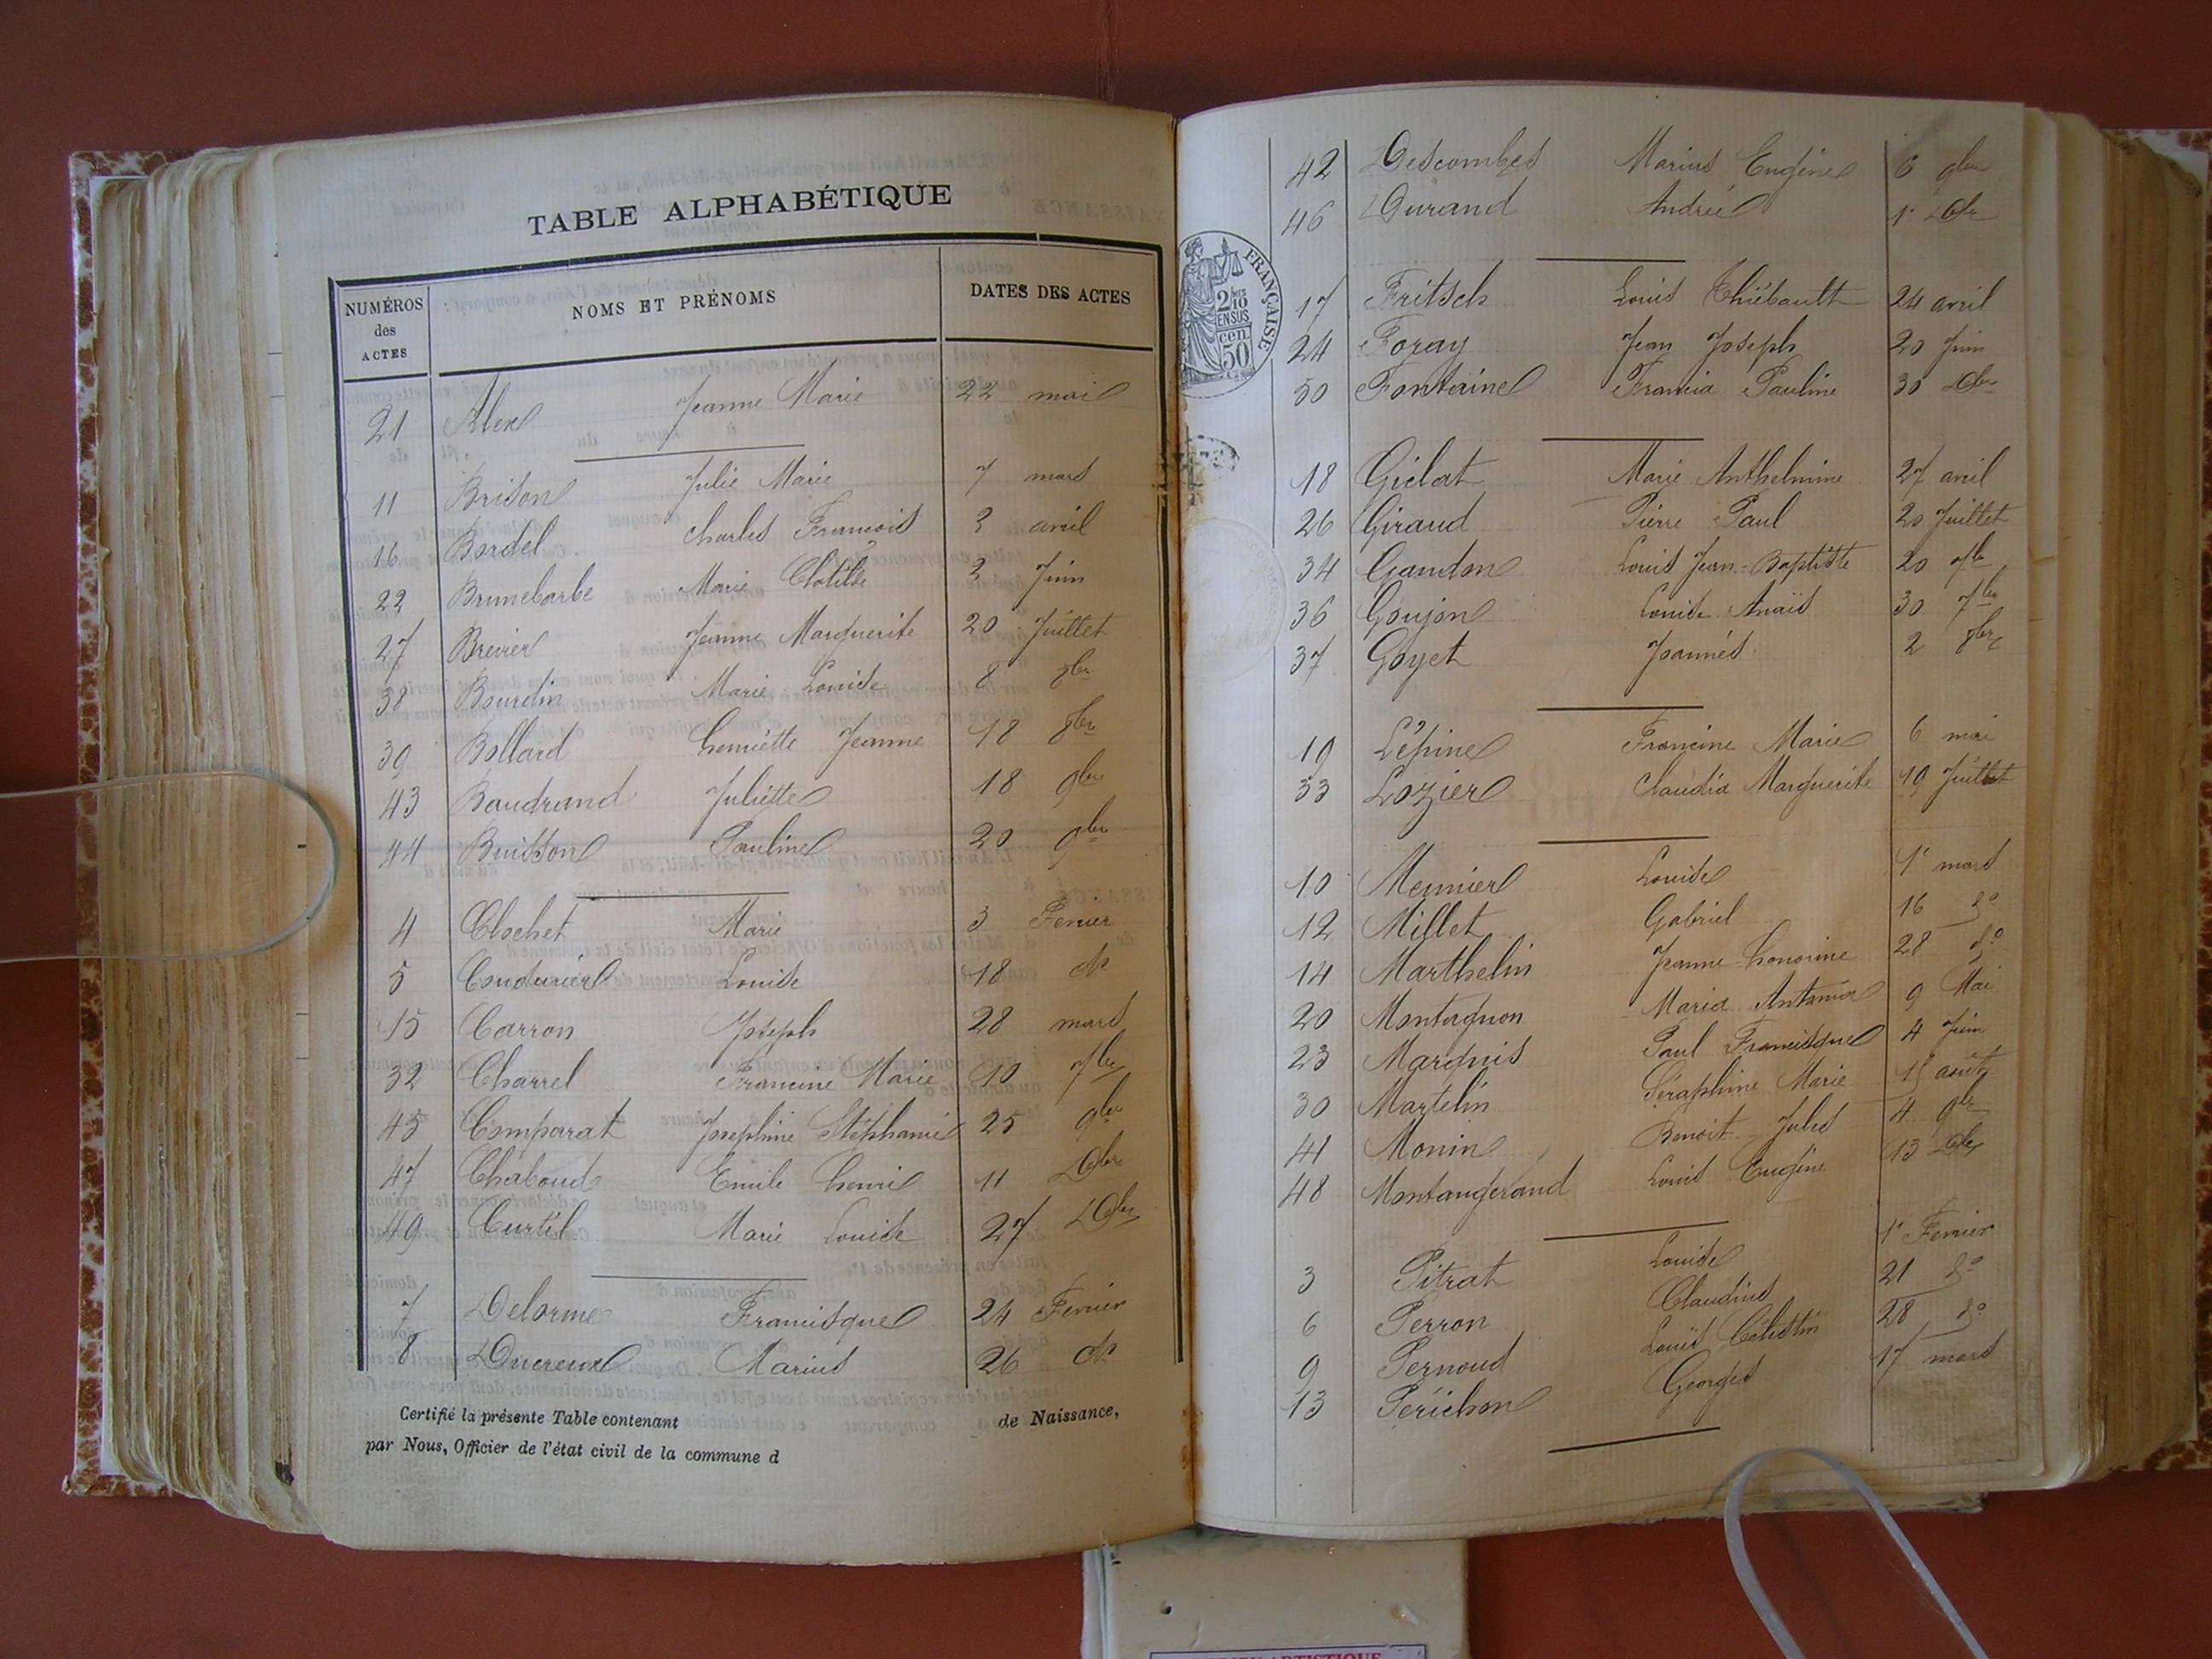 TABLE ALPHABÉTIQUE
NUMÉROS des ACTES NOMS ET PRÉNOMS DATES DES ACTES
21 Alex Jeanne Marie 22 mai
11 Brison Julie Marie 7 mars
16 Bordel Charles François 2 avril
22 Brunebarbe Marie Clotilde 2 Juin
27 Brevier Jeanne Marguerite 20 Juillet
38 Bourdin Marie Louise 8 8bre
39 Bollard henriette Jeanne 18 8bre
43 Baudrand Juliette 18 9bre
44 Buisson Pauline 20 9bre
4 Clochet Marie 3 Fevrier
5 Coudurier Louise 18 do
15 Carron Joseph 28 mars
32 Charrel Francine Marie 10 7bre
45 Comparat Josephine Stéphanie 25 9bre
47 Chaboud Emile henri 11 Dbre
49 Curtil Marie Louise 27 Dbre
7 Delorme Francisque 24 Fevrier
8 Ducreux Marius 26 do
Certifié la présente Table contenant de Naissance,
par Nous, Officier de l'état civil de la commune d
42 Descombes Marius Eugène 6 9bre
46 Durand André 1r Dbre
FRANÇAISE
2/10
EN SUS
50 cen.
17 Fritsch Louis Thiébault 24 avril
24 Foray Jean Joseph 20 Juin
50 Fontaine Francia Pauline 30 Dbre
18 Gielat Marie Anthelmine 27 avril
26 Giraud Pierre Paul 20 Juillet
34 Gandon Louis Jean-Baptiste 20 7bre
36 Goujon Louise Anaïs 30 7bre
37 Goyet Joannès 2 8bre
19 Lépine Francine Marie 6 mai
33 Lozier Claudia Marguerite 19 Juillet
10 Meunier Louise 1r mars
12 Millet Gabriel 16 do
14 Marthelin Jeanne honorine 28 do
20 Montagnon Maria Antonia 9 Mai
23 Marquis Paul Francisque 4 Juin
30 Martelin Séraphine Marie 15 août
41 Monin Benoit Jules 4 9bre
48 Montangerand Louis Eugène 13 Dbre
3 Pitrat Louise 1r Fevrier
6 Perron Claudius 21 do
9 Pernoud Louis Célestin 28 do
13 Périchon Georges 17 mars